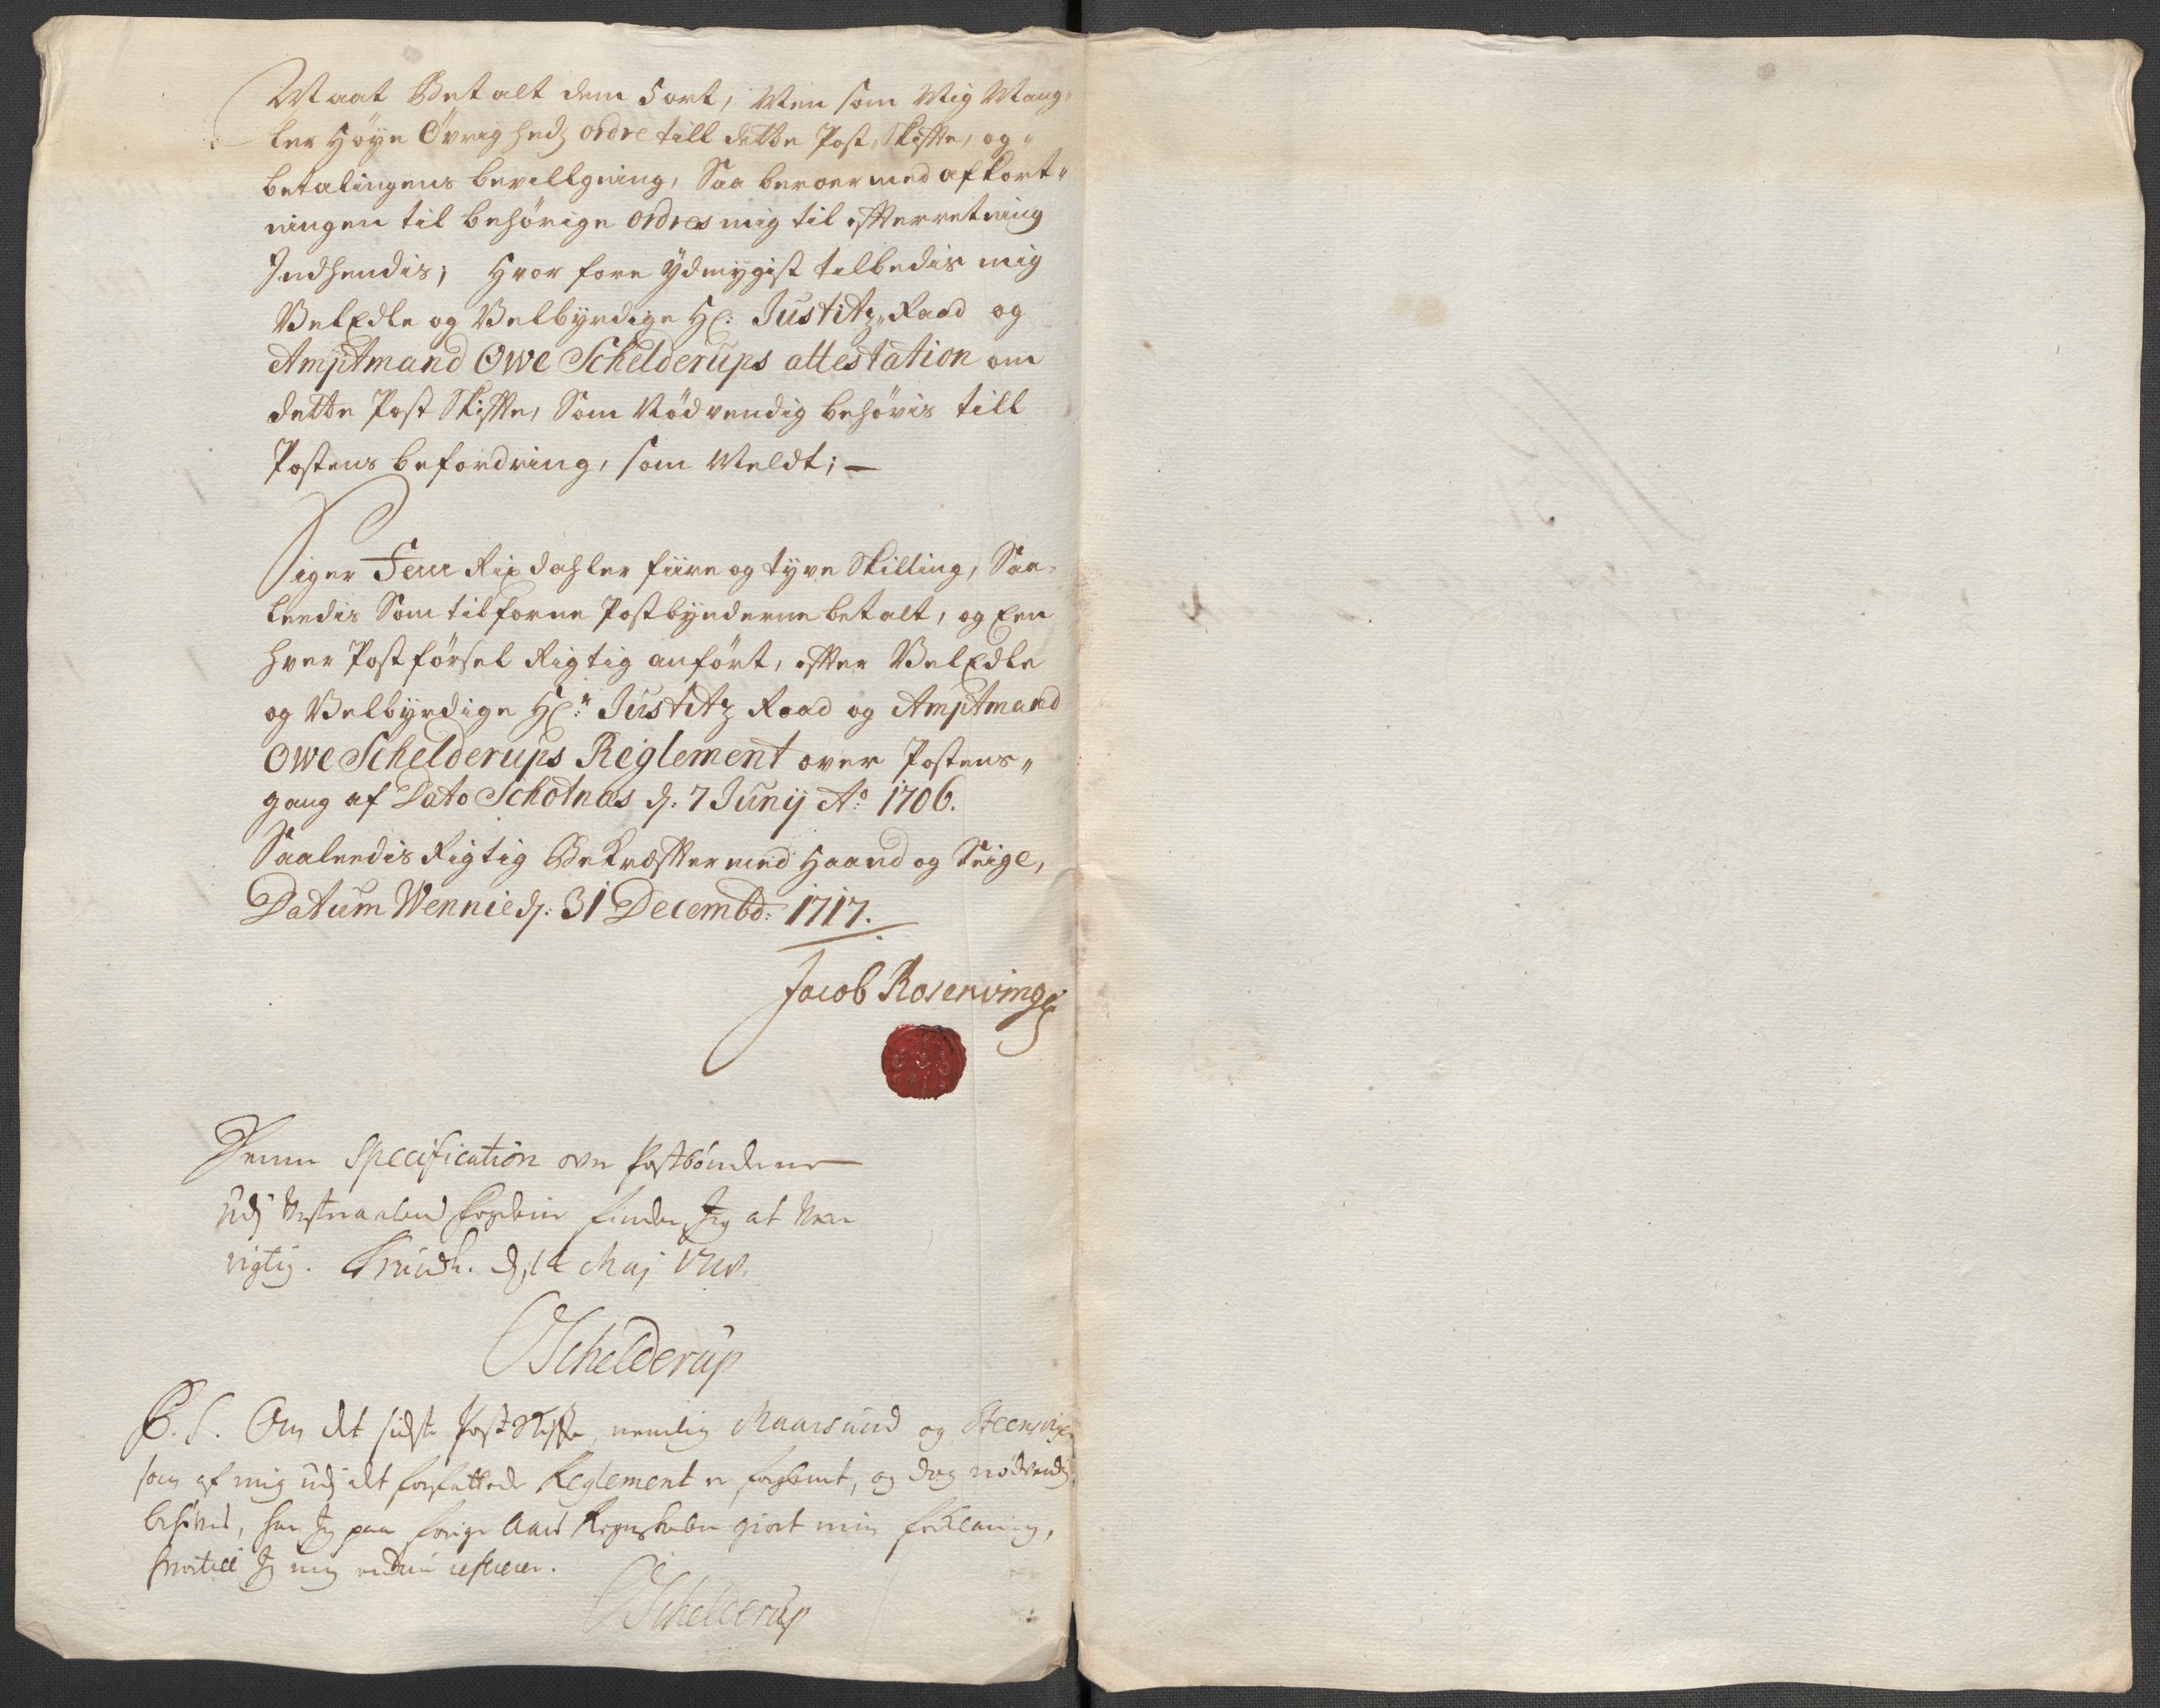 Maat Betalt dem 5 ort, Men som Mig Mang„
ler Høye Øvrigheds ordre till dette Post Skiffte, og„
betalingens bevillgning, Saa beroer med afkort„
ningen til behørige ordres mig til effterretning
Indhendis; Hvor fore ydmygist tilbedis mig
VelEdle og Velbyrdige Hr: Justitz„Raad og
Amptmand Owe Schelderups attestation om
dette Post Skiffte, Som Nødvendig behøvis till
Postens befordring, som Meldt; —
Siger Fem Rixdahler fiire og tyve Skilling, Saa„
leedis Som tilforne Postbynderne betalt, og Een
hver Postførsel Rigtig anført, effter VelEdle
og Velbyrdige Hr: Justitz Raad og Amptmand
Owe Schelderups Reglement over Postens„
gang af Dato Schotnæs d: 7 Junij Ao 1706.
Saaleedis Rigtig Bekræffter med Haand og Seigl,
Datum Wennie d: 31 Decembd: 1717.
Jacob Rosenvinge
Denne Specification over Postbønderne
udj Vesteraalens fogderie finder Jeg at være
rigtig. d: 14 Maj
OSchelderup
P.S. Om det sidste Post Skiffte, nemlig Maarsund og Steensvigen
som af mig udj det forfattede Reglement er forglemt, og dog nødvendig
behøves, har Jeg paa forige Aars Regenskaber giort min forklaring,
hvortil Jeg mig endnu refererer.
OSchelderup